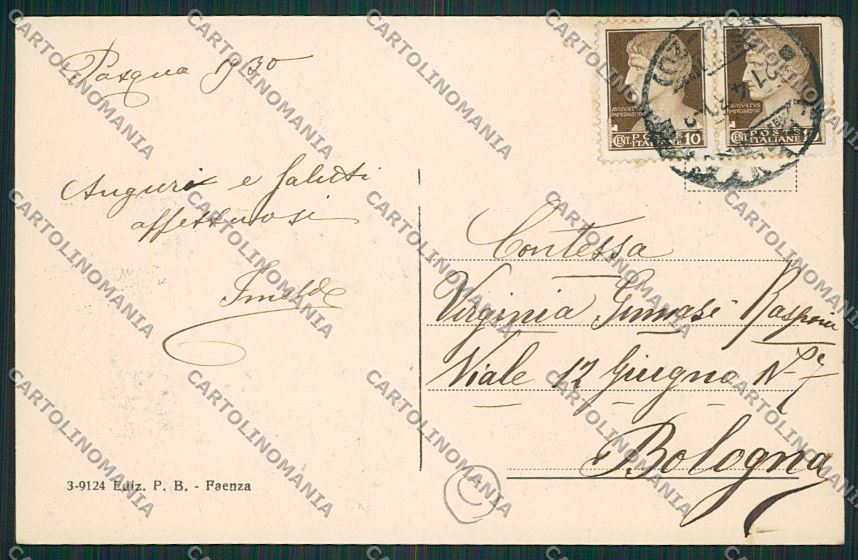 Pasqua 1930
Auguri e saluti
affettuosi
Imelde
3-9124 Ediz. P. B. - Faenza
AUGVSTVS
IMPERATOR
CENT. POSTE ITALIANE 10
AUGVSTVS
IMPERATOR
CENT. POSTE ITALIANE 10
Contessa
Virginia Rasponi
Viale 12 Giugno N° 7
Bologna
C
CARTOLINOMANIA